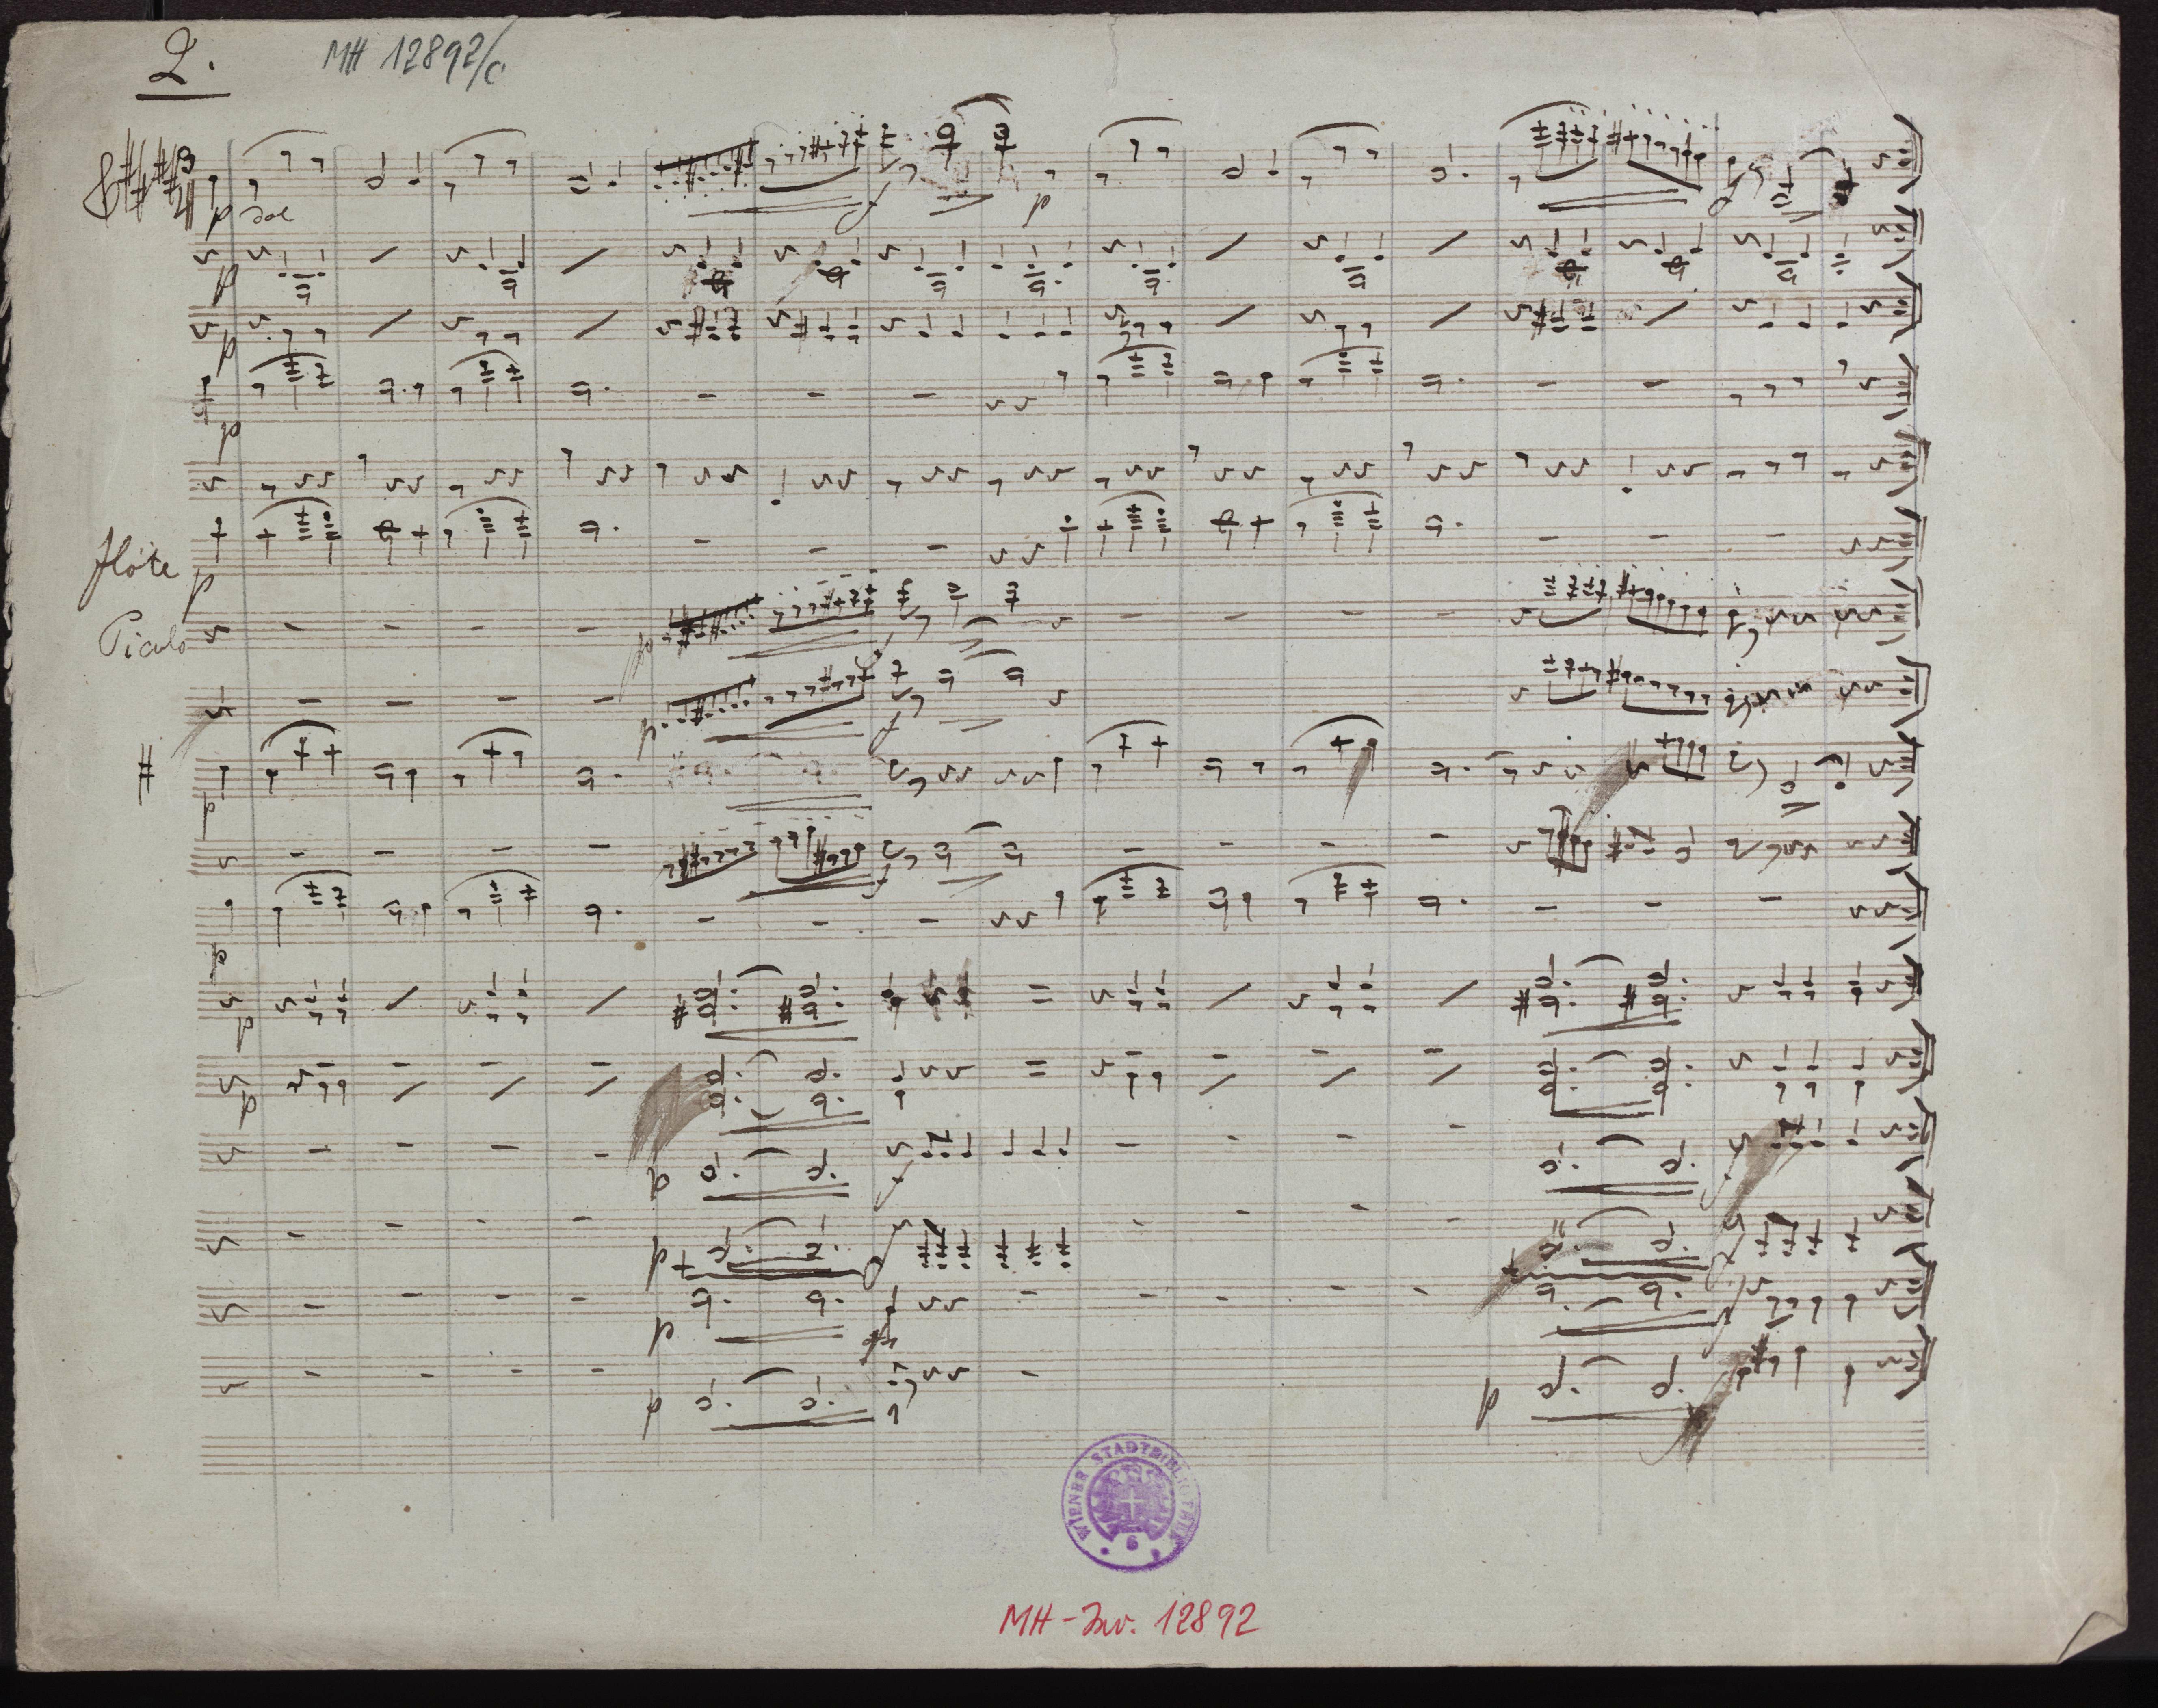 2.
MH 12892/c
3
4
p dol
f
p
f
p
p
p
flöte
p
Picolo
p
f
p
f
p
f
p
p
p
p
f
f
p
f
f
p
p
p
WIENER STADTBIBLIOTHEK
6
MH-Inv. 12892